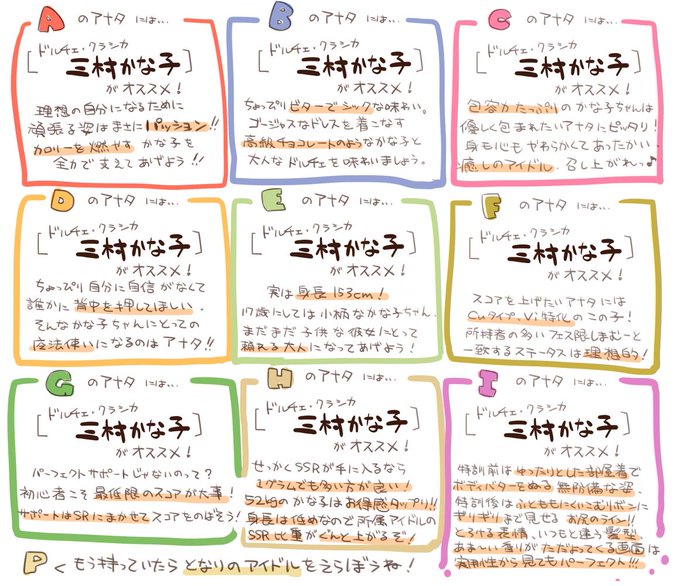 Aのアナタには…
[ドルチェ・クラシカ
三村かな子]
がオススメ!
理想の自分になるために
頑張る姿はまさにパッション!!
カロリーを燃やす かな子を
全力で支えてあげよう!!
Bのアナタには…
[ドルチェ・クラシカ
三村かな子]
がオススメ!
ちょっぴりビターでシックな味わい。
ゴージャスなドレスを着こなす
高級チョコレートのようなかな子と
大人なドルチェを味わいましょう。
Cのアナタには…
[ドルチェ・クラシカ
三村かな子]
がオススメ!
包容力たっぷりのかな子ちゃんは
優しく包まれたいアナタにピッタリ!
身も心もやわらかくてあったかい
癒しのアイドル、召し上がれっ♪
Dのアナタには…
[ドルチェ・クラシカ
三村かな子]
がオススメ!
ちょっぴり自分に自信がなくて
誰かに背中を押してほしい、
そんなかな子ちゃんにとっての
魔法使いになるのはアナタ!!
Eのアナタには…
[ドルチェ・クラシカ
三村かな子]
がオススメ!
実は身長153cm!
17歳にしては小柄なかな子ちゃん。
まだまだ子供な彼女にとって
頼れる大人になってあげよう!
Fのアナタには…
[ドルチェ・クラシカ
三村かな子]
がオススメ!
スコアを上げたいアナタには
Cuタイプ、Vi特化のこの子!
所持者の多いフェス限しまむーと
一致するステータスは理想的!
Gのアナタには…
[ドルチェ・クラシカ
三村かな子]
がオススメ!
パーフェクトサポートじゃないのって?
初心者こそ最低限のスコアが大事!
サポートはSRにまかせてスコアをのばそう!
Hのアナタには…
[ドルチェ・クラシカ
三村かな子]
がオススメ!
せっかくSSRが手に入るなら
1グラムでも多い方が良い!
52kgのかな子はお得感タップリ!!
身長は低めなので所属アイドルの
SSR比重がぐんと上がるぞ!
Iのアナタには…
[ドルチェ・クラシカ
三村かな子]
がオススメ!
特訓前はゆったりとした部屋着で
ボディバターをぬる無防備な姿、
特訓後はふとももにくいこむリボンに
ギリギリまで見せるお尻のライン!!
とろける表情、いつもと違う髪型、
あまーい香りがただよってくる画面は
実用性から見てもパーフェクト!!!
P<もう持っていたらとなりのアイドルをえらぼうね!